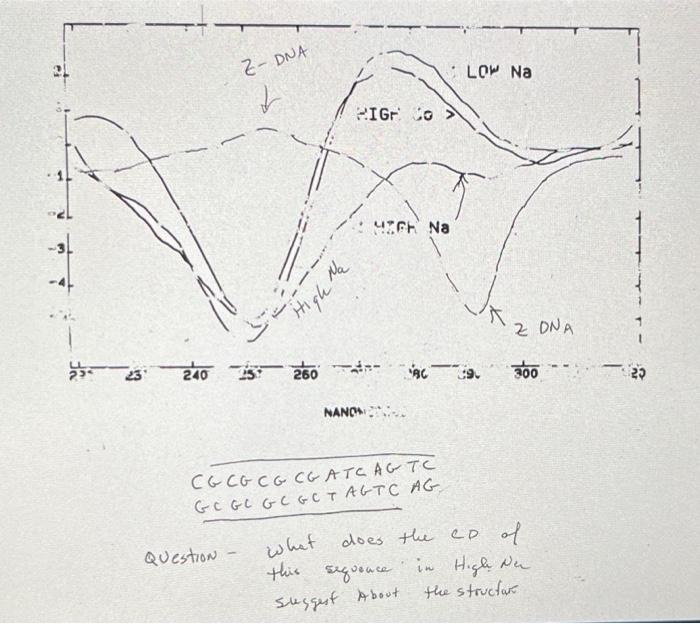 Z-DNA
LOW Na
HIGH Co >
HIGH Na
High Na
Z DNA
-1
-2
-3
-4
240
260
300
CGCGCGCGATCAGTC
GCGCGCGCTAGTCAG
Question - What does the CD of
this sequence in High Na
suggest About the structure